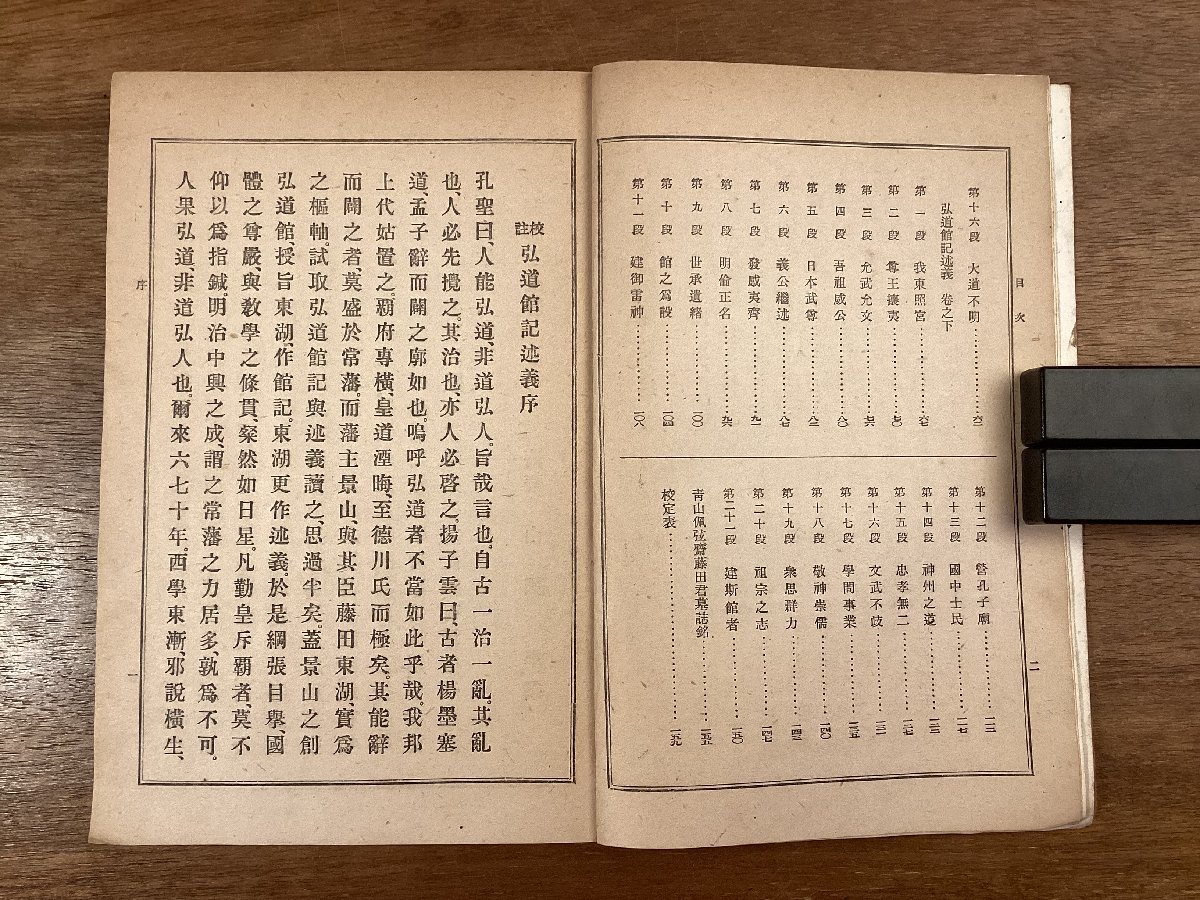 目次
二
第十六段 大道不明……………六二
弘道館記述義 卷之下
第一段 我東照宮……………六七
第二段 尊王攘夷……………七〇
第三段 允武允文……………七六
第四段 吾祖威公……………八〇
第五段 日本武尊……………八三
第六段 義公繼述……………八七
第七段 發感夷齊……………九一
第八段 明倫正名……………九六
第九段 世承遺緖……………一〇〇
第十段 館之爲設……………一〇四
第十一段 建御雷神……………一〇八
第十二段 營孔子廟……………一一三
第十三段 國中士民……………一一七
第十四段 神州之道……………一二三
第十五段 忠孝無二……………一二七
第十六段 文武不岐……………一三一
第十七段 學問事業……………一三五
第十八段 敬神崇儒……………一四〇
第十九段 衆思群力……………一四三
第二十段 祖宗之志……………一四七
第二十一段 建斯館者……………一五〇
靑山佩弦齋藤田君墓誌銘……………一五五
校定表……………一五九
校註 弘道館記述義序
孔聖曰、人能弘道、非道弘人。旨哉言也。自古一治一亂。其亂
也、人必先攪之。其治也、亦人必啓之。揚子雲曰、古者楊墨塞
道、孟子辭而闢之廓如也。嗚呼弘道者不當如此乎哉。我邦
上代姑置之。覇府專橫、皇道湮晦、至德川氏而極矣。其能辭
而闢之者、莫盛於常藩。而藩主景山、與其臣藤田東湖、實爲
之樞軸。試取弘道館記與述義讀之、思過半矣。蓋景山之創
弘道館、授旨東湖、作館記。東湖更作述義。於是綱張目擧、國
體之尊嚴、與敎學之條貫、粲然如日星。凡勤皇斥覇者、莫不
仰以爲指鍼。明治中興之成、謂之常藩之力居多、孰爲不可。
人果弘道、非道弘人也。爾來六七十年。西學東漸、邪說橫生、
序
一